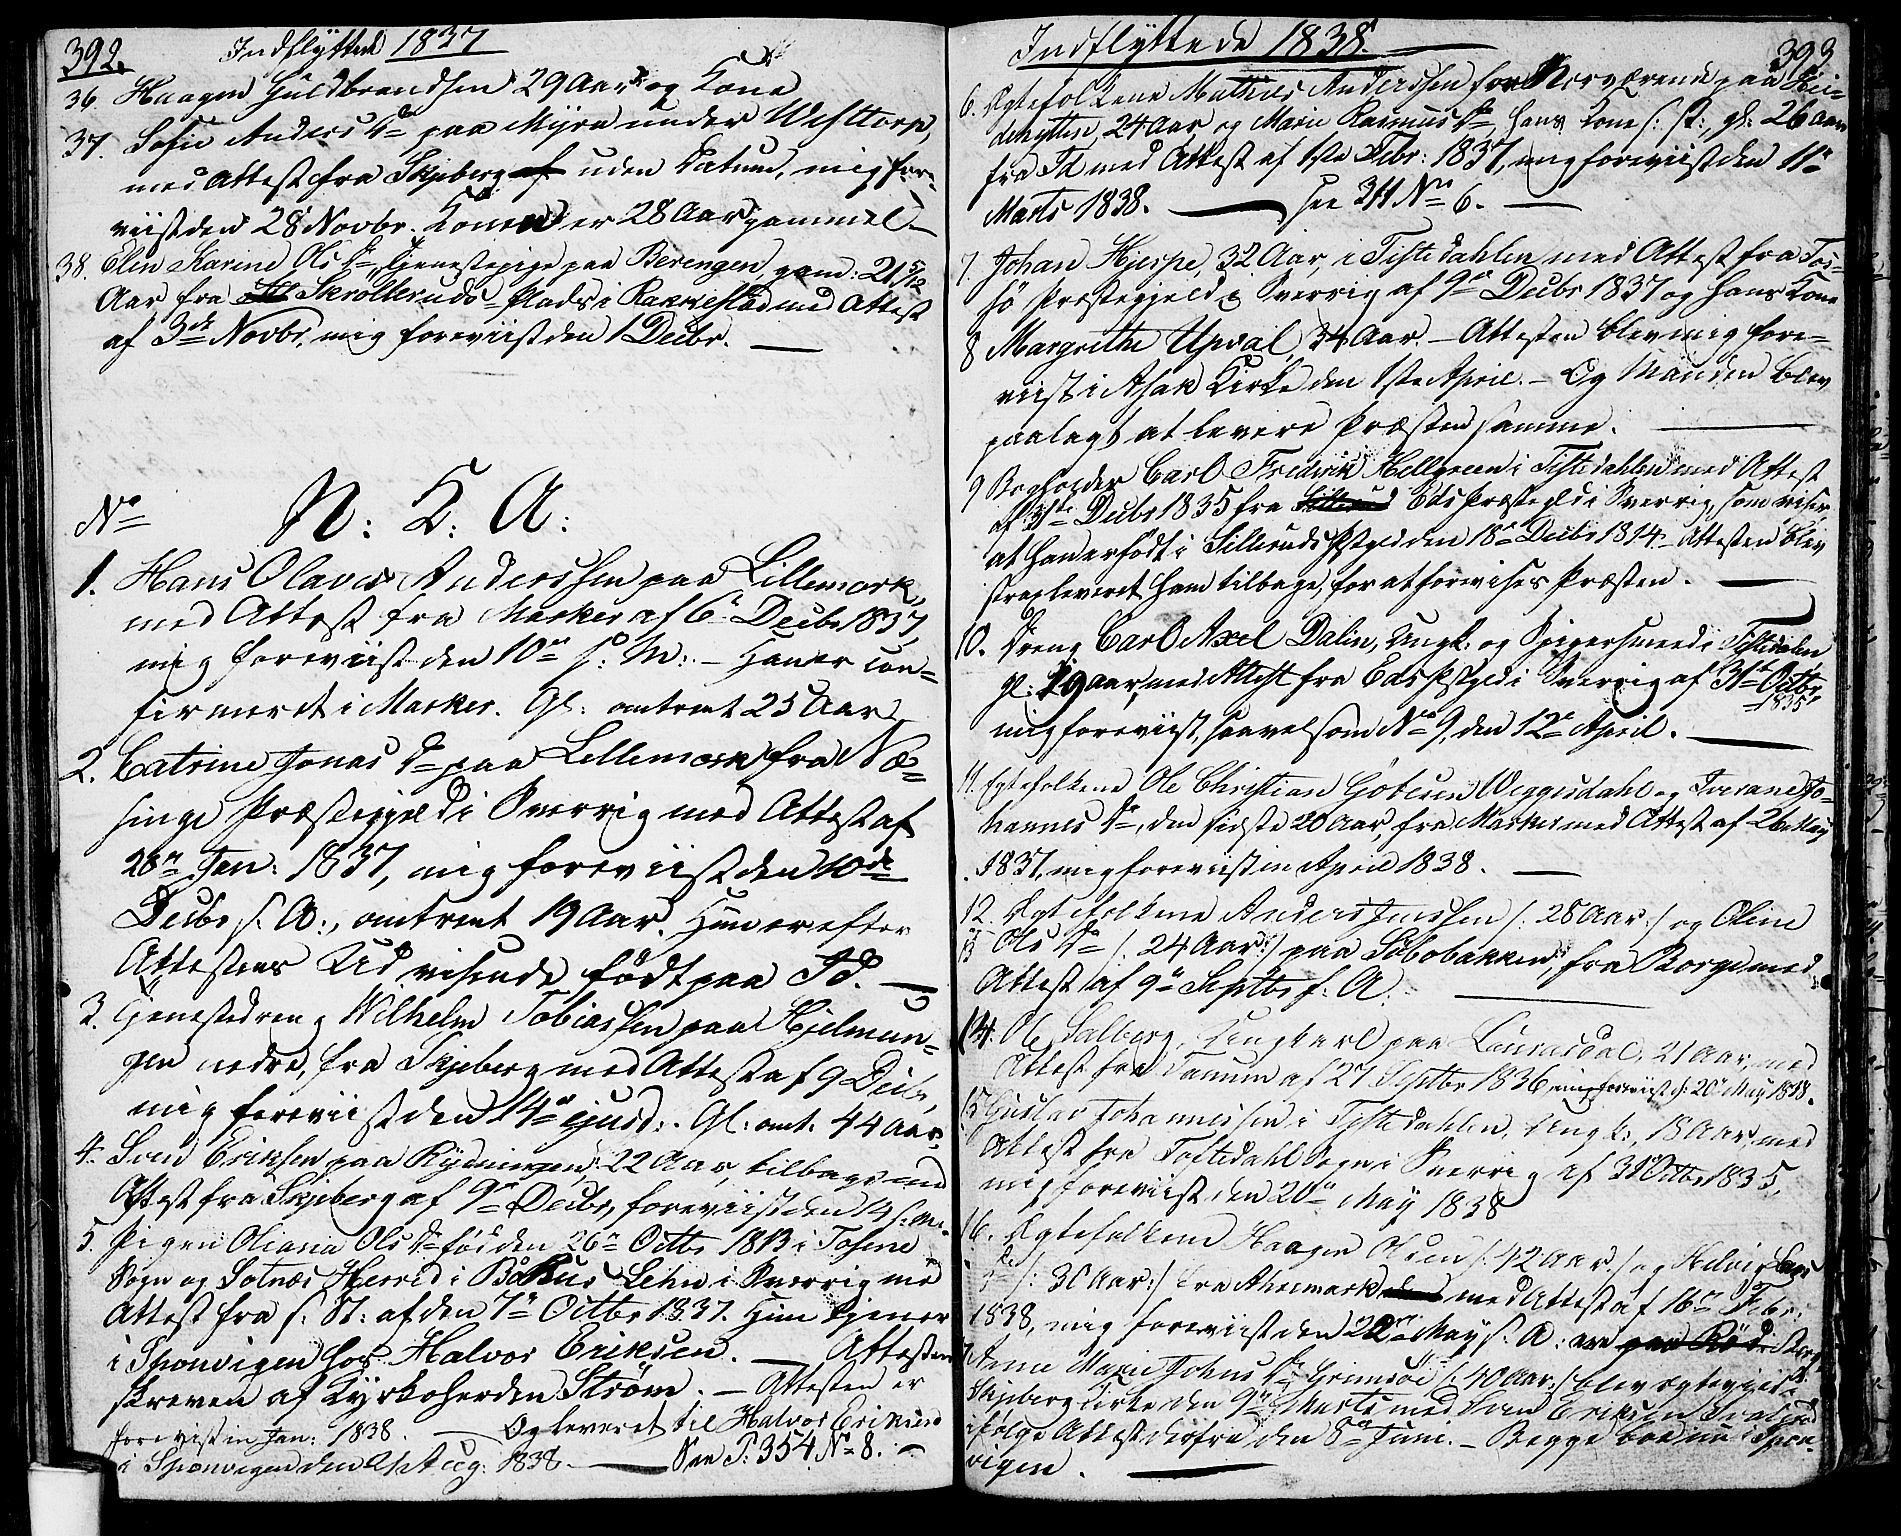 392. Indflyttede 1837
36. Haagen Guldbrandsen 29 Aar og Kone
37. Sofie Anders D. paa Myra under Westtorp,
med Attest fra Skjeberg af uden Datum, mig fore-
viist den 28 Novbr. Konen er 28 Aar gammel
38. Elen Karine Ols D. Tjenestepige paa Berengen, gam: 21 5/12
Aar fra Skrolleruds-Plads i Rakkestad med Attest
af 3de Novbr, mig foreviist den 1 Decbr.
No N: K: A:
1. Hans Olaves Anderssen paa Lillemork,
med Attest fra Marker af 6. Decbr 1837,
mig foreviist den 10de s: M: - Han er con-
firmeret i Marker. Gl: omtrent 25 Aar
2. Catrine Jonas D. paa Lillemork fra Næ-
singe Præstegjeld i Sverrig med Attest af
28de Jan: 1837, mig foreviist den 10de
Decbr s. A:, omtrent 19 Aar. Hun er efter
Attestens Udvisende født paa Id.
3. Tjenestedreng Wilhelm Tobiassen paa Hjelmun-
gen nedre, fra Skjeberg med Attest af 9 Decbr,
mig foreviist den 14de ejusd: Gl: omt. 44 Aar.
4. Sven Eriksen paa Rydningen, 22 Aar, tilbage med
Attest fra Skjeberg af 9de Decbr, foreviist den 14 s: M.
5. Pigen Oliana Ols D. født den 26de Octbr 1813 i Tosene
Sogn og Sotnæs Herred i Båhus Lehn i Sverrig med
Attest fra s: St: af den 7de Octbr 1837. Hun tjener
i Sponvigen hos Halvor Eriksen. - Attesten
skreven af Kyrkoherden Strøm. - Attesten er
foreviist in Jan: 1838. - Og leveret til Halvor Eriksen
i Sponvigen den 21 Aug: 1838. - See P: 354 No 8.
Indflyttede 1838. 393
6. Ægtefolkene Mathies Anderssen for Nærværende paa
24 Aar og Marie Rasmus D. hans Kone s: St:, gl: 26 Aar
fra Id med Attest af 1ste Febr: 1837, mig foreviist den 11te
Marts 1838. - See 311 No 6.
7. Johan Hjerpe, 32 Aar, i Tistedahlen med Attest fra Tos-
sö Præstegjeld i Sverrig af 9de Decbr 1837 og hans Kone
8 Margrethe Upval, 34 Aar. - Attesten blev mig fore-
viist i Asak Kirke den 1ste April. - Og Manden blev
paalagt at levere Præsten samme.
9 Bogholder Carl Fredrik Hellgreen i Tistedahlen med Attest
af 3die Decbr 1835 fra Eds Præstegjeld i Sverrig, som viser
at han er født i Silleruds Pstgjd den 18de Decbr 1814. Attesten blev
strax leveret ham tilbage, for at forevises Præsten.
10. Dreng Carl Axel Dalin, Ungk: og Spigersmed i Tistedalen
gl: 19 Aar, med Attest fra Eds Pstgjd i Sverrig af 31te Octbr
1835
mig foreviist, saavelsom No 9, den 12te April.
11. Egtefolkene Ole Christian Götesen Weggesdahl og Joerane Jo-
hannes D., den sidste 20 Aar, fra Marker med Attest af 26 May
1837, mig foreviist in April 1838.
12. Ægtefolkene Anders Jenssen /: 28 Aar :/ og Oline
13 Ols D. /: 24 Aar :/ paa Söbobakken, fra Borge med
Attest af 9de Septbr s: A.
14. Ole Salberg, Ungkarl paa 21 Aar, med
Attest fra Tanum af 27 Septbr 1836, mig foreviist d: 20 May 1838.
15 Gustav Johannessen i Tistedahlen, Ungk:, 18 Aar, med
Attest fra Töftedahl Sogn i Sverrig af 31 Octbr 1835,
mig foreviist den 20de May 1838
16. Ægtefolkene Haagen Olsen /: 42 Aar :/ og Helvig Lars
D. /: 30 Aar :/ fra Aremark med Attest af 16de Febr:
1838, mig foreviist den 22de May s. A: paa Röd
Anne Marie Johns D. Grimsöe /: 40 Aar :/ blev ægteviet i
Skjeberg Kirke den 9de Marts med Sven Eriksen
ifølge Attest derfra den 8de Juni. - Begge boe nu i Spon-
vigen.